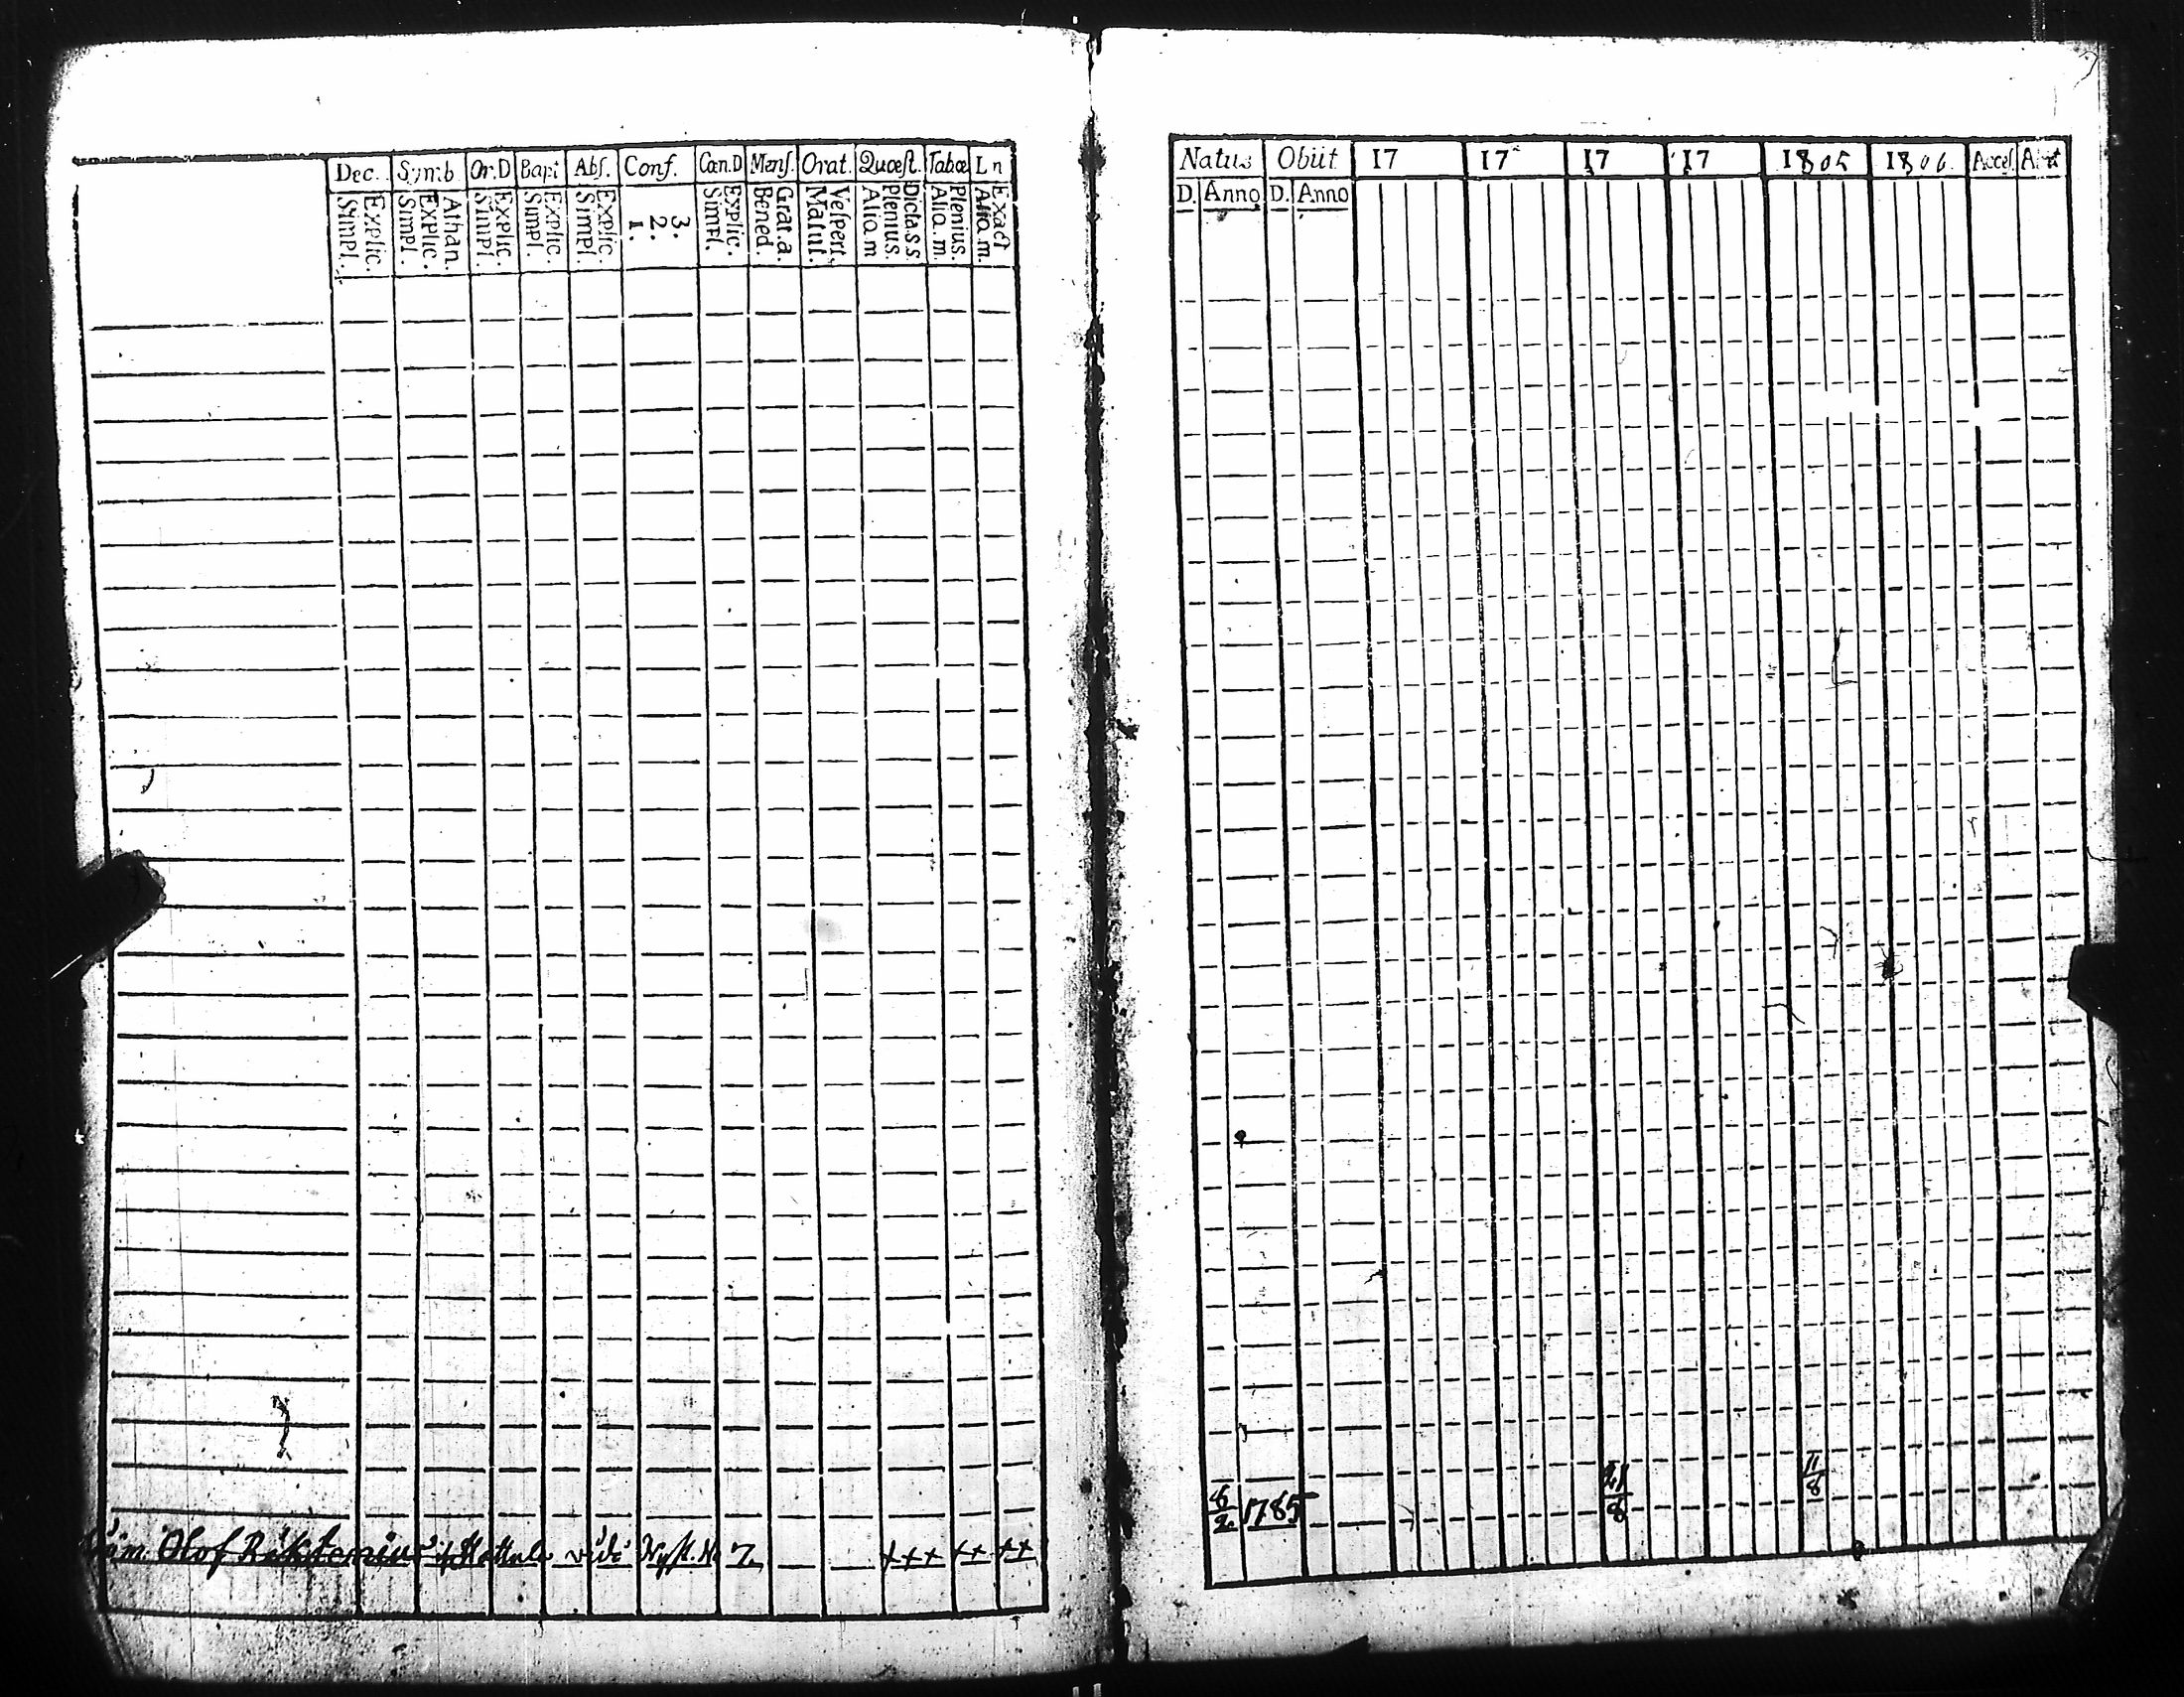 Dec. Symb. Or.D Bapt Abs. Conf. Can.D Mens. Orat. Quæst. Tabæ L n
Simpl. Explic. Simpl. Explic. Athan. Simpl. Explic. Simpl. Explic. Simpl. Explic. 1. 2. 3. Simpl. Explic. Bened. Grat.a. Matut. Vespert. Alio.m Plenius. Dicta.s.s Alio.m Plenius. Alio.m. Exact
Olof 7 +++ ++ ++
Natus Obiit 17 17 17 17 1805 1806 Acces. A
D. Anno D. Anno
6/2 1785 21/8 11/8